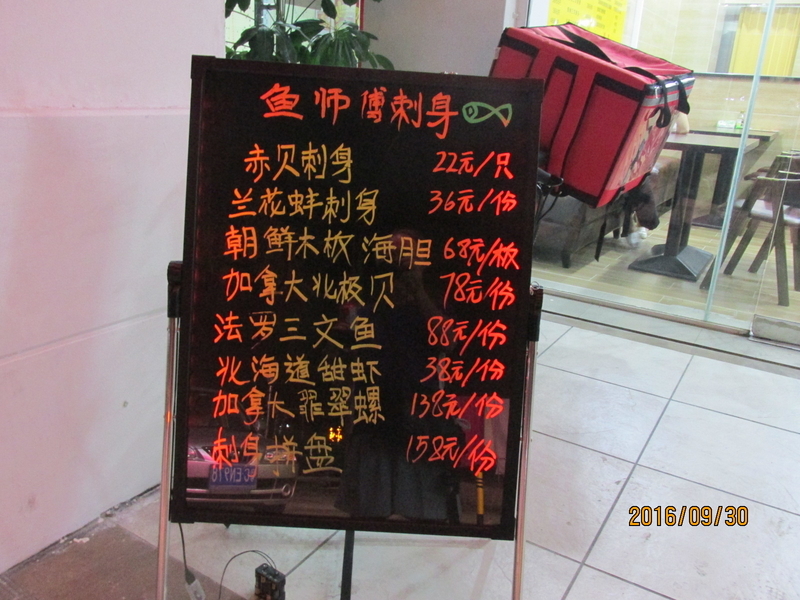 鱼师傅刺身
赤贝刺身 22元/只
兰花蚌刺身 36元/份
朝鲜木板海胆 68元/板
加拿大北极贝 78元/份
法罗三文鱼 88元/份
北海道甜虾 38元/份
加拿大翡翠螺 138元/份
刺身拼盘 158元/份
2016/09/30